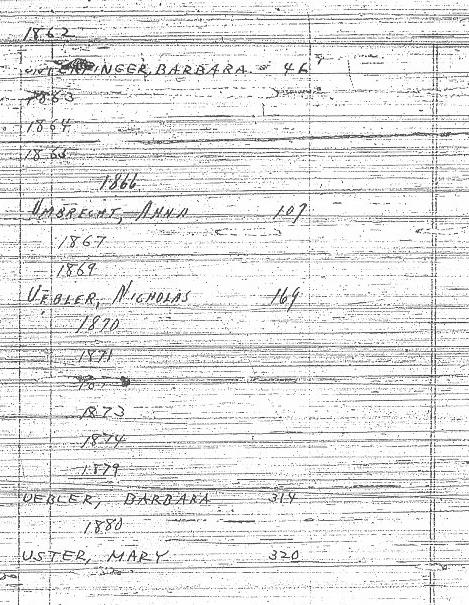 1862
INGER, BARBARA. 46
1863
1864
1865
1866
UMBRECHT, ANNA 107
1867
1869
UEBLER, NICHOLAS 169
1870
1871
1873
1874
1879
UEBLER, BARBARA 314
1880
USTER, MARY 320